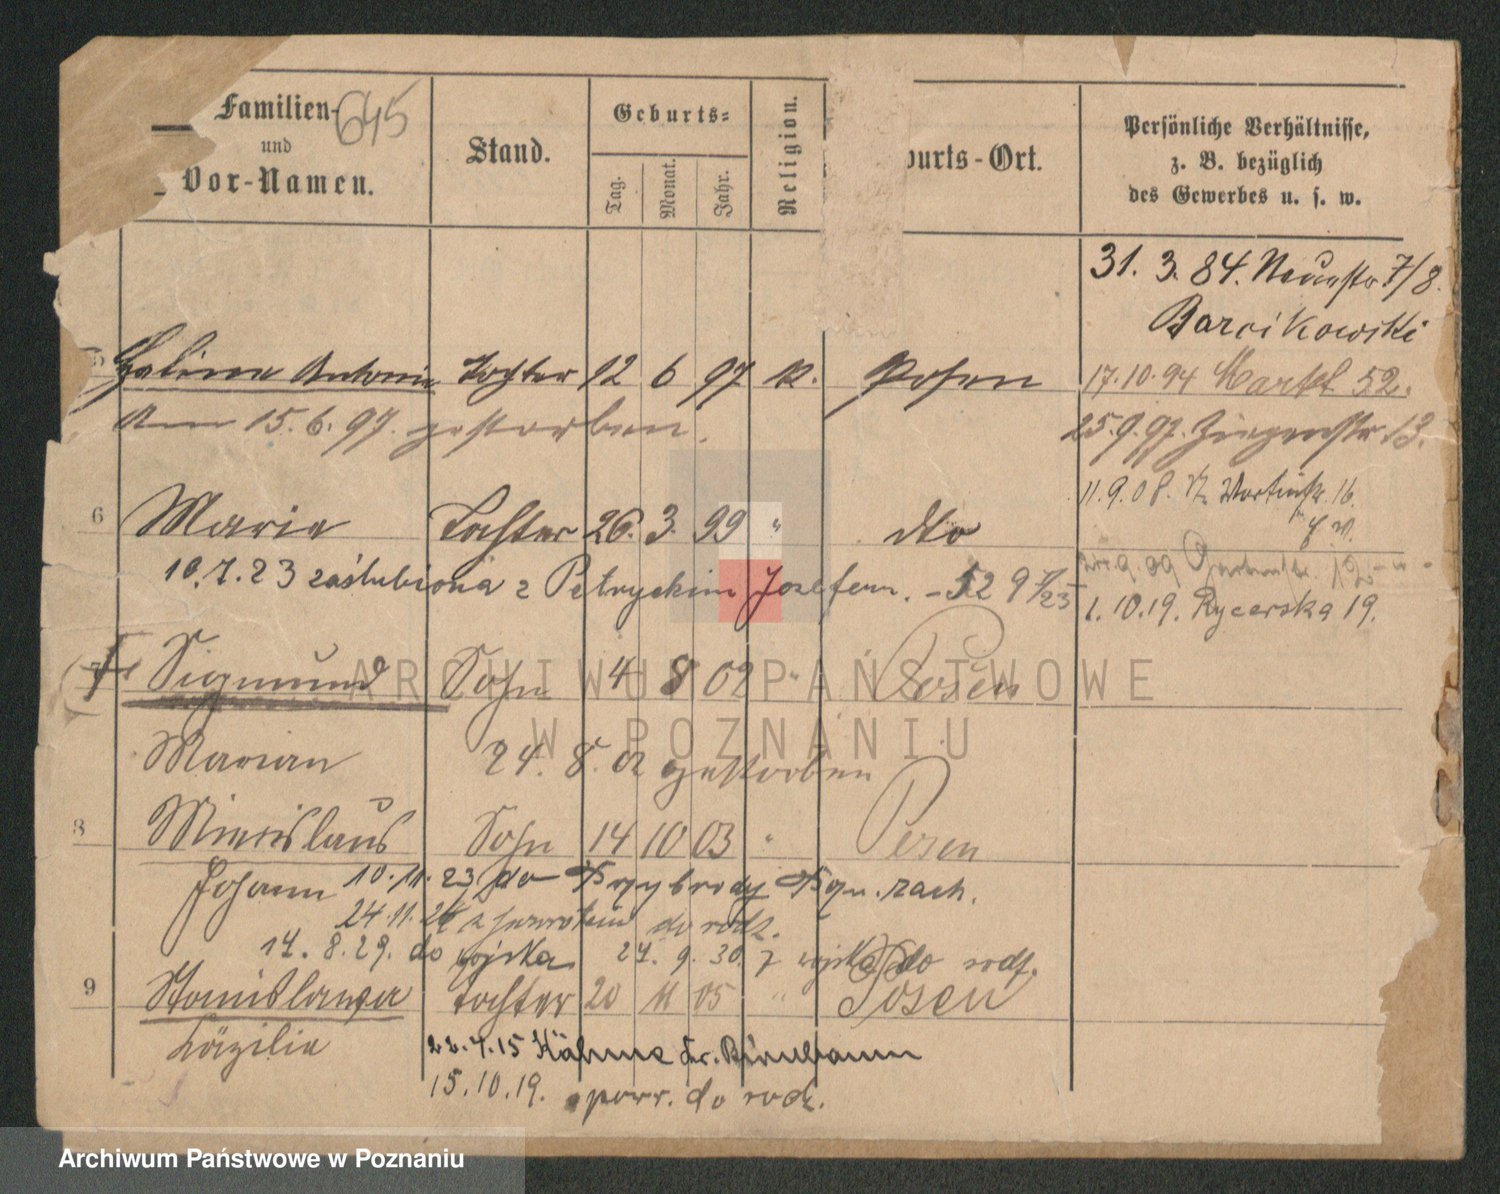 Familien-
645
und
Vor-Namen.
Stand.
Geburts-
Tag.
Monat.
Jahr.
Religion.
burts-Ort.
Persönliche Verhältnisse,
z. B. bezüglich
des Gewerbes u. s. w.
31. 3. 84. Neuestr 7/8.
Barcikowski
5 Halina Antonie Tochter 12 6 97 k. Posen
17.10.94 Markt 52.
Am 15.6.97. gestorben.
25.9.97. Ziegenstr. 13.
11.9.08. 16
6 Maria Tochter 26. 3. 99 " dto
10.7.23 zaślubiona z Petryckim Józefem. - 52
1.10.19. Rycerska 19.
7 Sigmund Sohn 4 8 02 " Posen
Marian 24. 8. 02 gestorben
8 Miecislaus Sohn 14 10 03 " Posen
Johann 10.11.23 do Przybrody
24.11.24 z powrotem do rodz.
14. 8. 29. do wojska 24. 9. 30. z wojska do rodz.
9 Stanislawa Tochter 20 11 05 " Posen
Cäzilie
22.4.15 Kähme Kr. Birnbaum
15.10.19. powr. do rodz.
ARCHIWUM PAŃSTWOWE
W POZNANIU
Archiwum Państwowe w Poznaniu